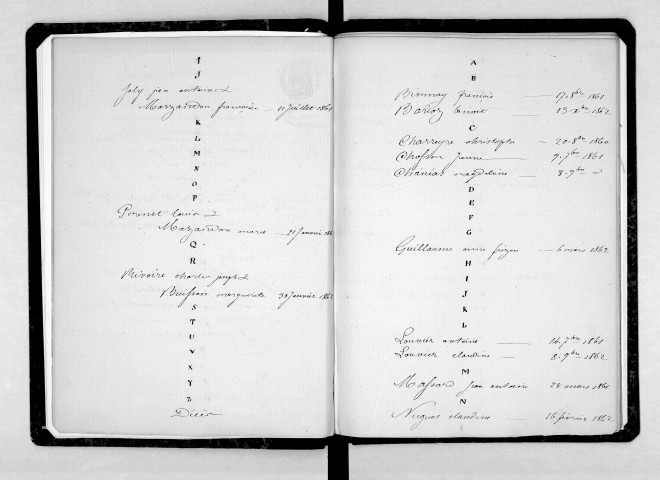 I
J
Joly jean antoine &
Marzaudon françoise — 11 juillet 1861
K
L
M
N
O
P
Pernet louis &
Marzaudon marie — 21 janvier 186
Q
R
Rivoire charles joseph &
Buisson marguerite 30 janvier 1862
S
T
U
V
X
Y
Z
Décès
A
B
françois — 17 8bre 1861
benoit — 13 Xbre 1862
C
Charreyre christophe — 20 8bre 1860
Chosson jeanne — 9 7bre 1861
Chanéas magdelaine — 8 9bre id
D
E
F
G
Guillaume — 6 mars 1862
H
I
J
K
L
Louvier antoine — 14 7bre 1861
Louvier claudine — 8 9bre 1862
M
Massard jean antoine 28 mars 1861
N
Nugues claudine — 16 février 1862